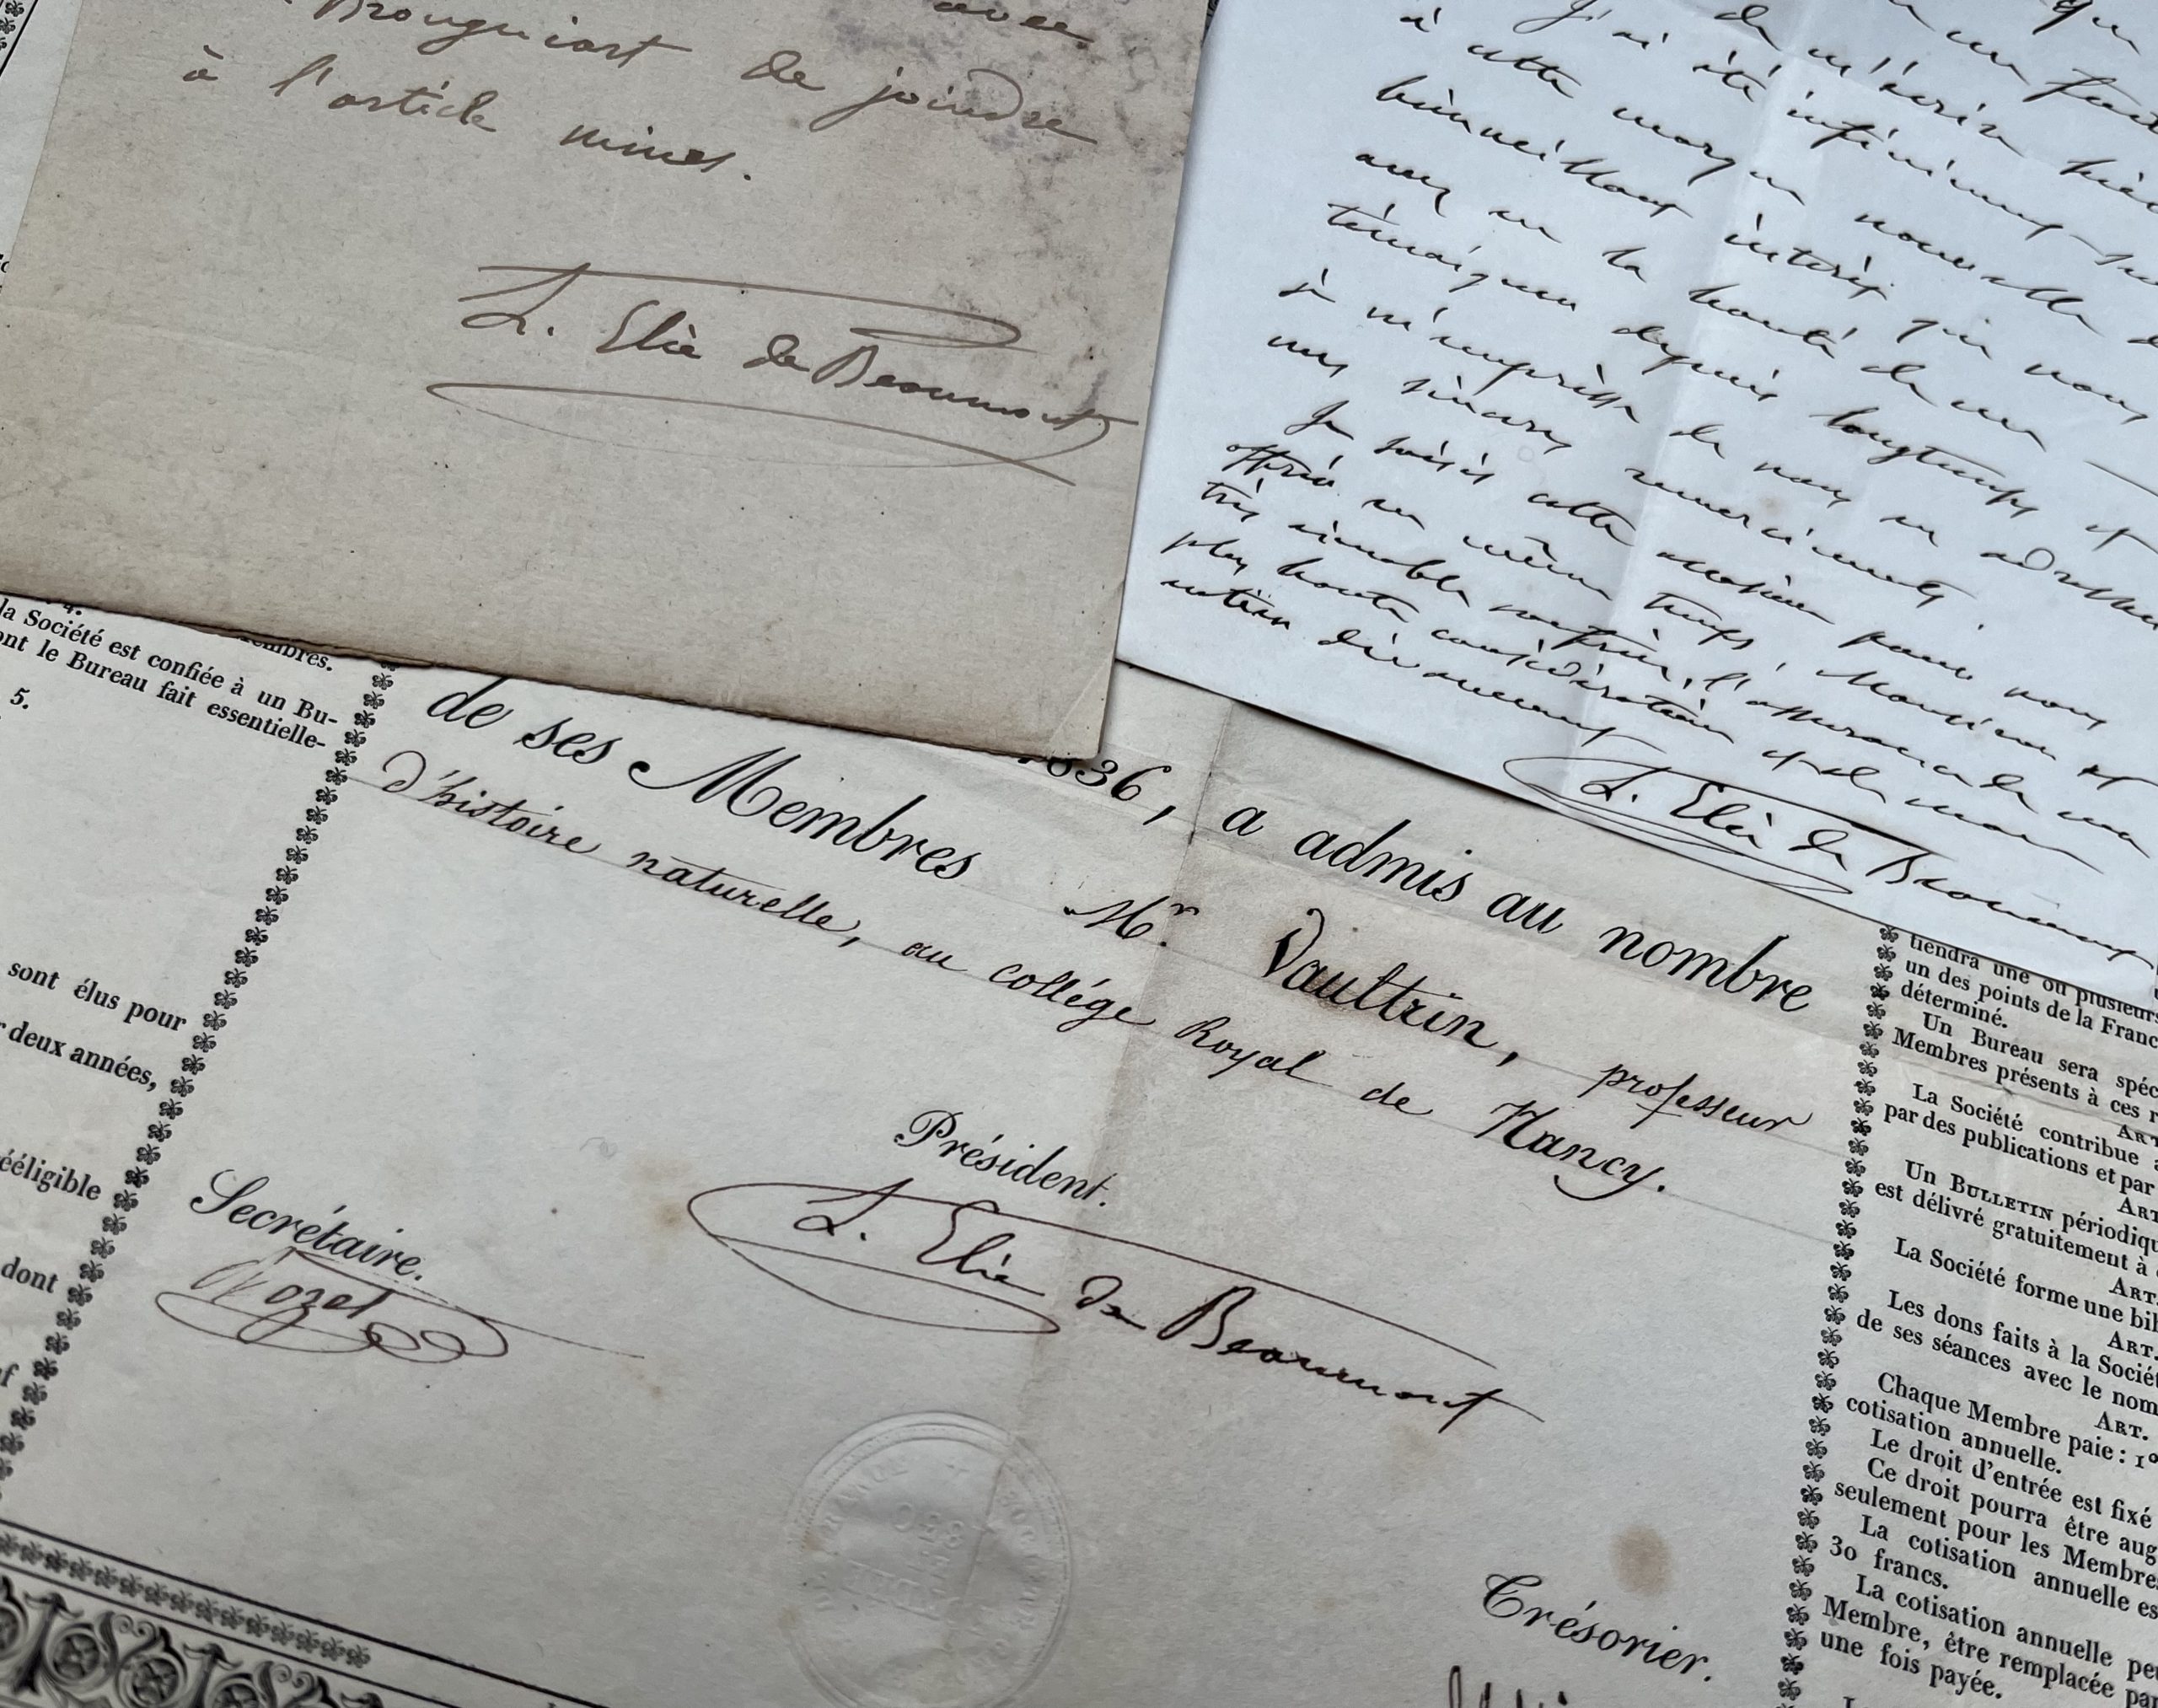 avec
Brongniart de joindre
à l'article mines.
L. Elie de Beaumont
qui
de m'écrire
J'ai été infiniment
à cette marque nouvelle
bienveillant intérêt que vous
avez eu la bonté de me
témoigner depuis longtemps et
je m'empresse de vous en adresser
mes sincères remerciements.
Je saisis cette occasion pour vous
offrir en même temps, Monsieur et
très aimable confrère, l'assurance de ma
plus haute considération et de mon
entier dévouement
L. Elie de Beaumont
4.
Membres.
la Société est confiée à un Bu-
ont le Bureau fait essentielle-
5.
sont élus pour
deux années,
ééligible
dont
1836, a admis au nombre
de ses Membres Mr. Vaultrin, professeur
d'histoire naturelle, au collége Royal de Nancy.
Président.
L. Elie de Beaumont
Secrétaire.
Rozet
Trésorier.
tiendra une ou plusieurs
un des points de la Franc
déterminé.
Un Bureau sera spéc
Membres présents à ces r
ART
La Société contribue
par des publications et par
ART
Un BULLETIN périodiqu
est délivré gratuitement à
ART.
La Société forme une bib
ART.
Les dons faits à la Sociét
de ses séances avec le nom
ART.
Chaque Membre paie : 1°
cotisation annuelle.
Le droit d'entrée est fixé
Ce droit pourra être aug
seulement pour les Membres
La cotisation annuelle es
30 francs.
La cotisation annuelle pe
Membre, être remplacée par
une fois payée.